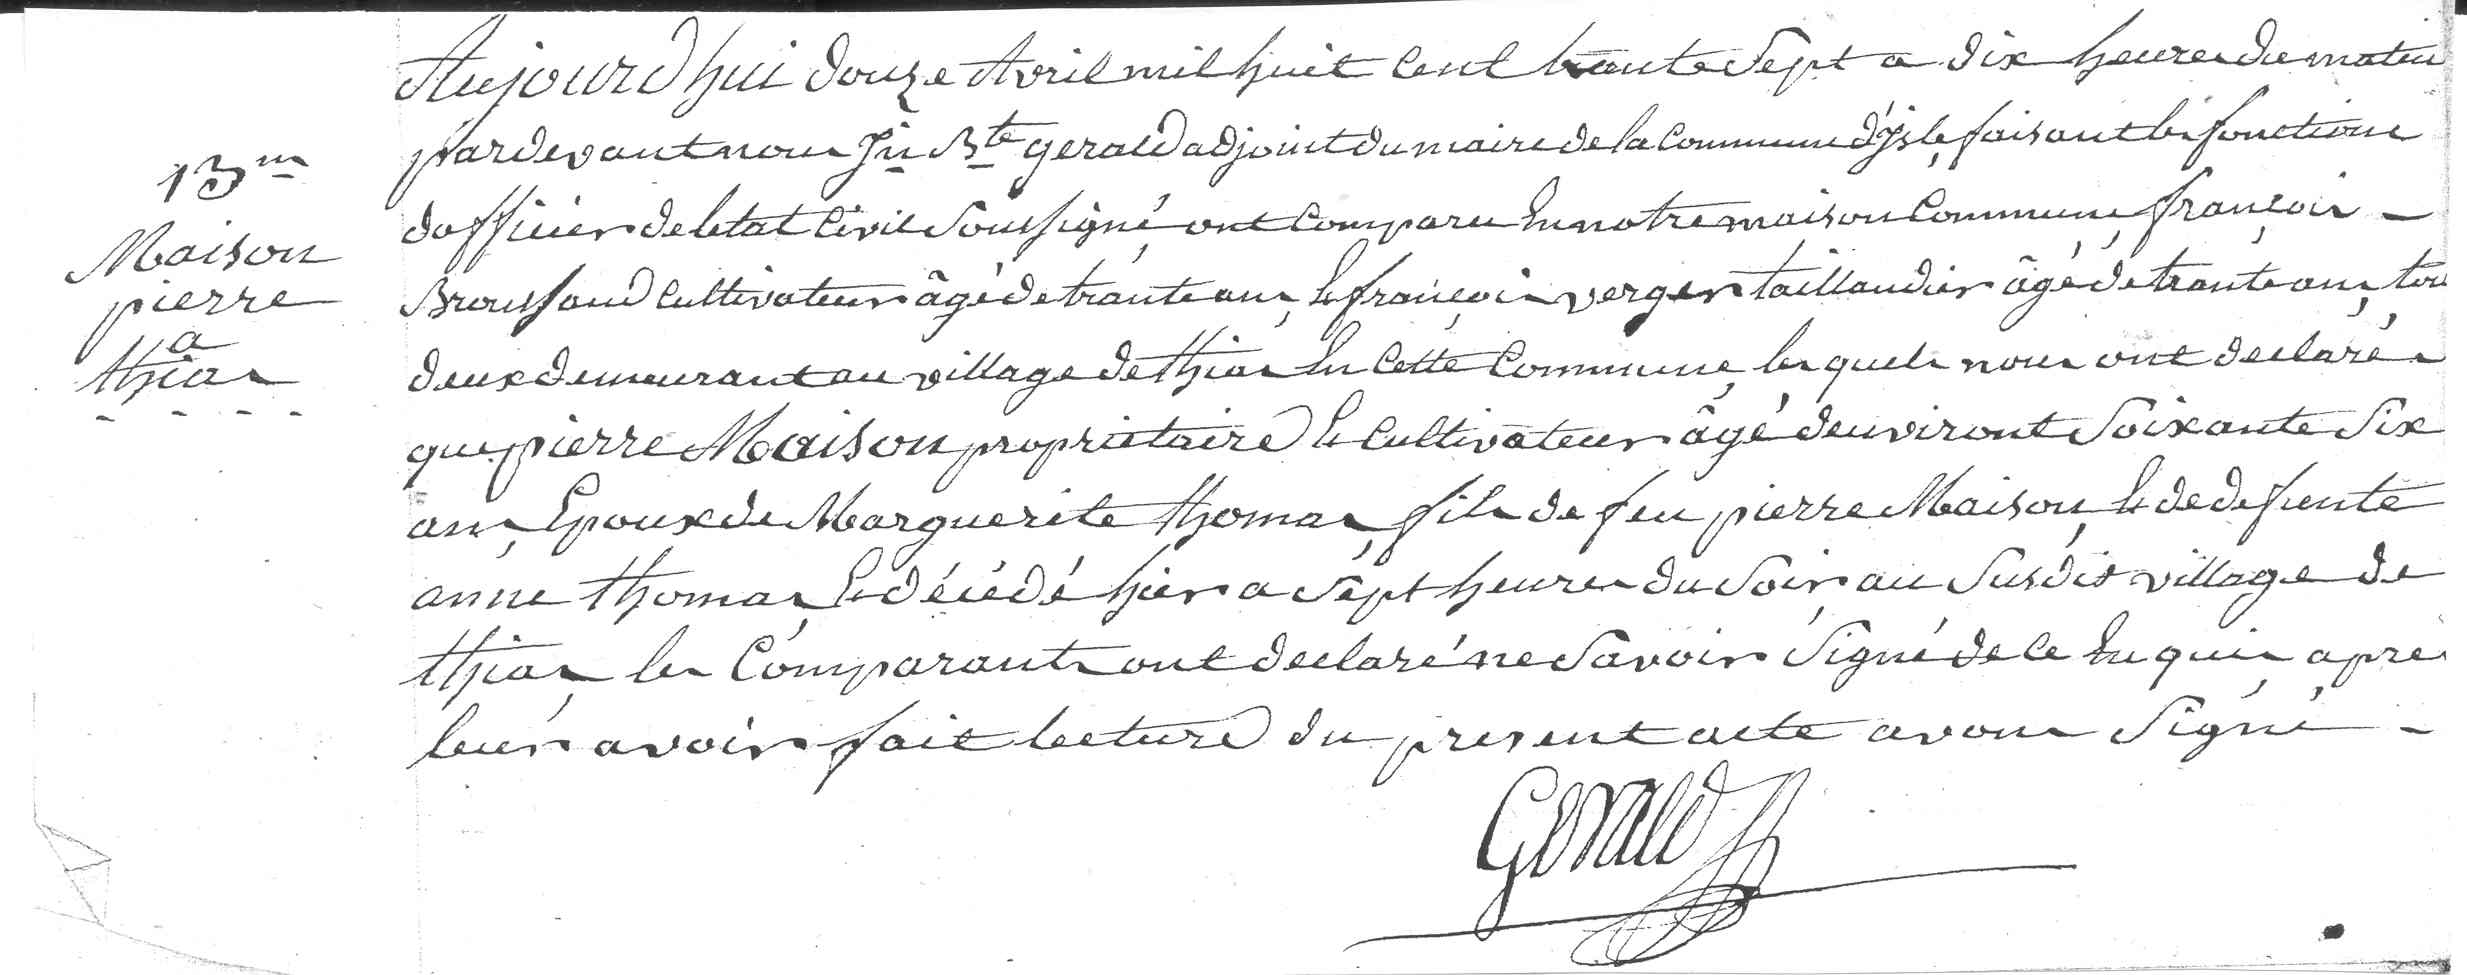 13me
Maison
pierre
a
thias
Aujourd'hui douze Avril mil huit Cent trante Sept a dix heures du matin
pardevant nous Jn Bte gerald adjoint du maire de la Commune d'Isle, faisant les fonctions
dofficier de letat Civil Soussigné, ont Comparu En notre maison Commune, françois -
Broussaud Cultivateur âgé de trante ans, Et françois verger taillandier âgé de trante ans, tou
deux demeurant au village de thias En Cette Commune, les quels nous ont declarés
que pierre Maison propriétaire Et Cultivateur âgé denviront Soixante Six
ans, Epoux de Marguerite thomas, fils de feu pierre Maison, Et de defunte
anne thomas, Est décédé hier a Sept heures du Soir au Susdit village de
thias, les Comparants ont declaré ne Savoir Signé de Ce Enquis, apres
leur avoir fait lecture du present acte avons Signé -
Gerald